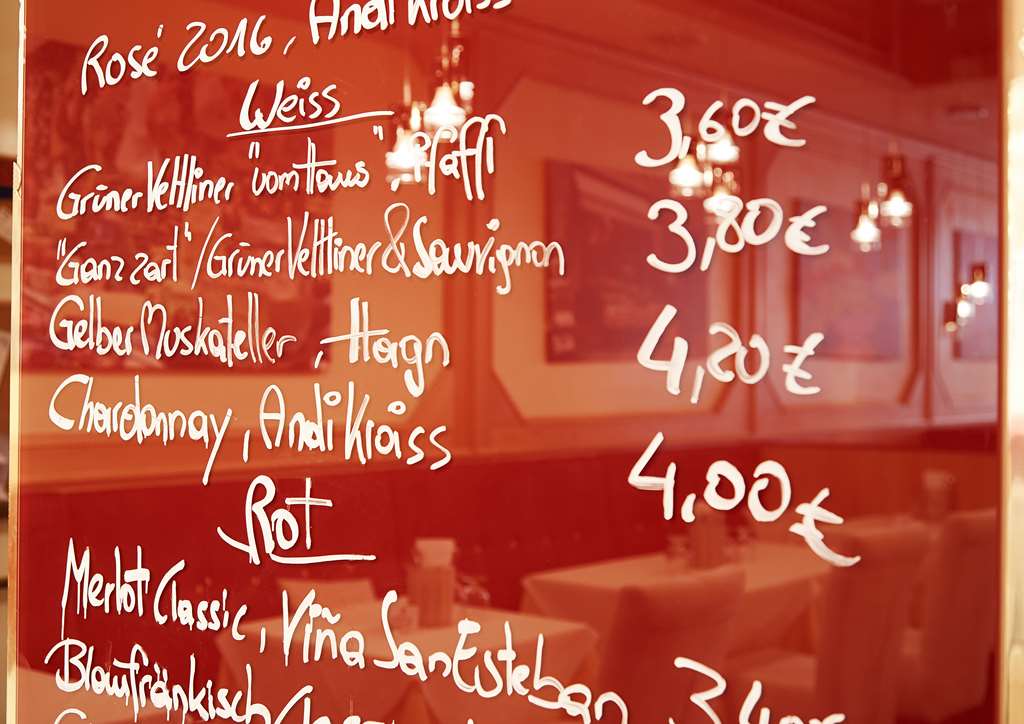 Rosé 2016, Andi Kraiss
Weiss
Grüner Veltliner "vom Haus", Pfaffl 3,60€
"Ganz zart" / Grüner Veltliner & Sauvignon 3,80€
Gelber Muskateller, Hagn 4,20€
Chardonnay, Andi Kraiss 4,00€
Rot
Merlot Classic, Viña San Esteban
Blaufränkisch